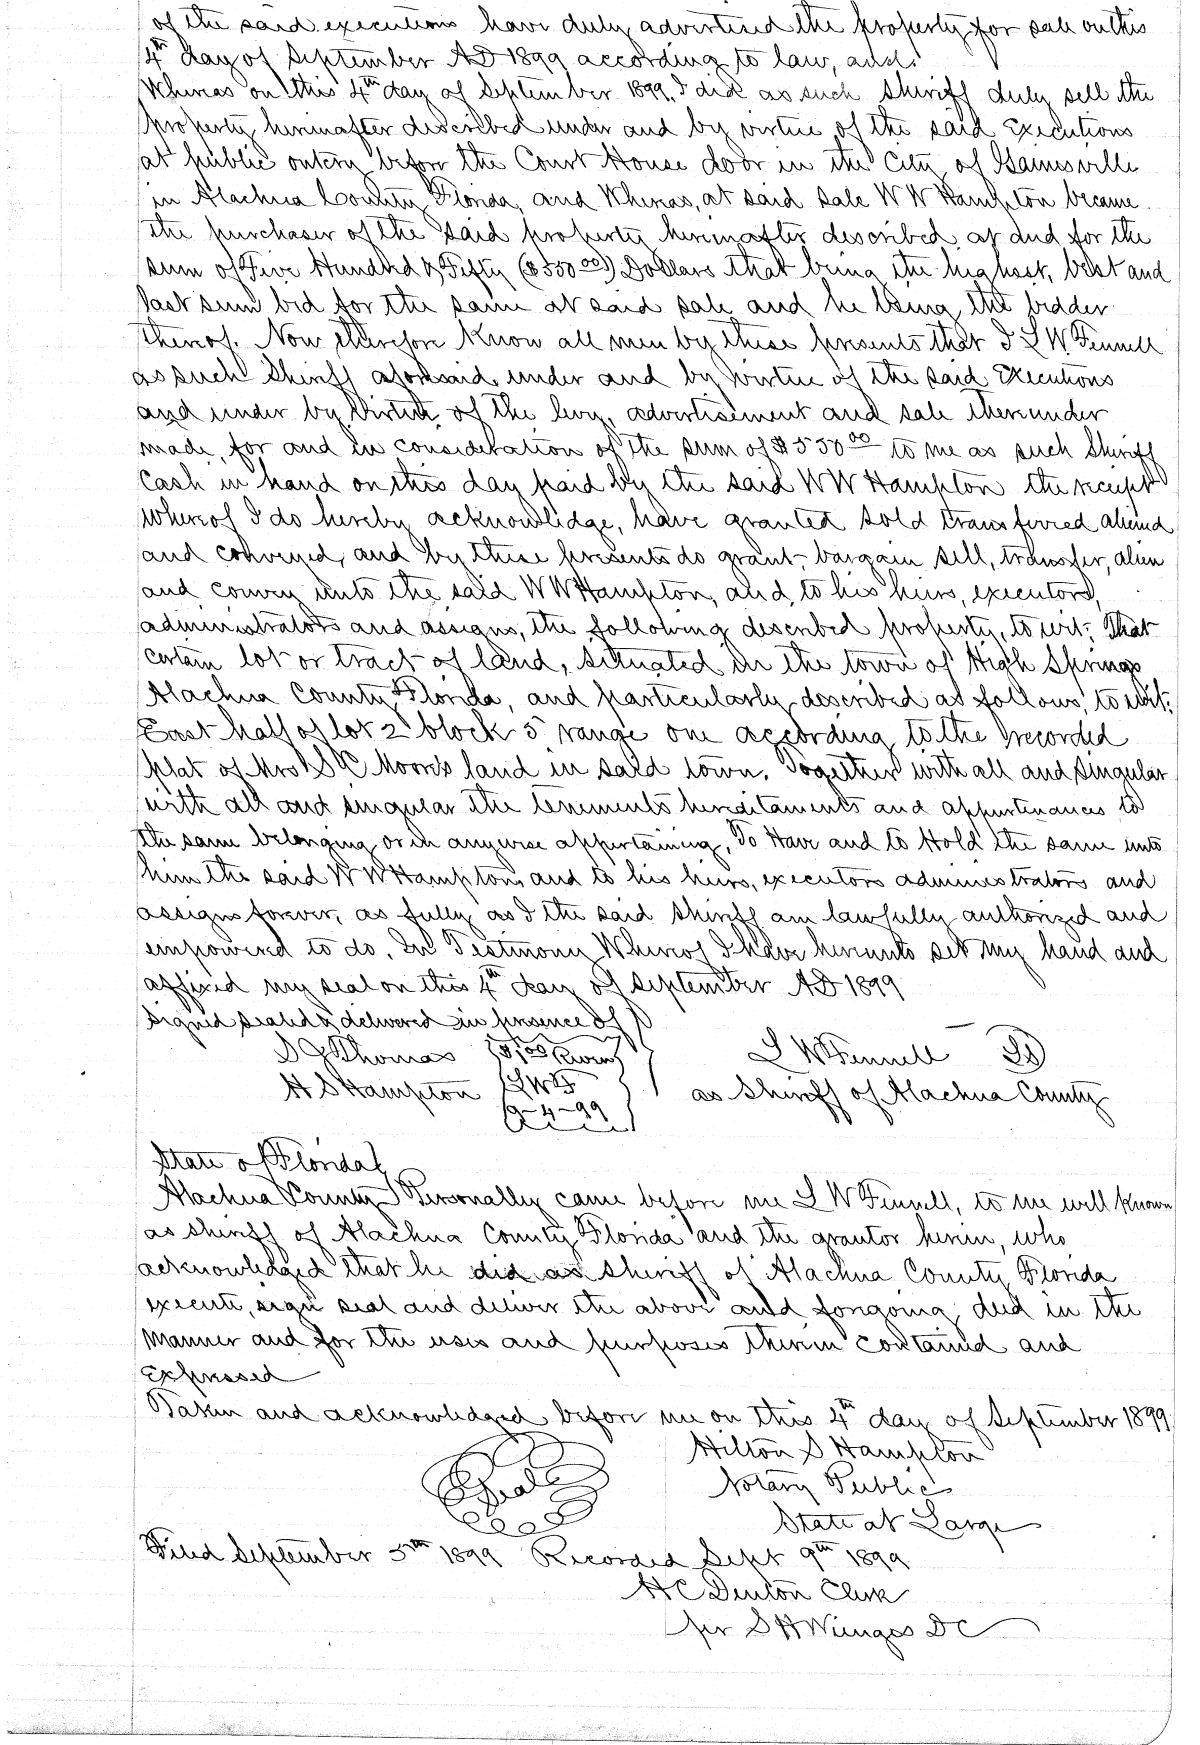 of the said executions have duly advertised the property for sale on this
4th day of September AD 1899 according to law, and
Whereas on this 4th day of September 1899, I did as such Sheriff duly sell the
property hereinafter described under and by virtue of the said Executions
at public outcry before the Court House door in the City of Gainesville
in Alachua County Florida, and Whereas, at said sale W W Hampton became
the purchaser of the said property hereinafter described at and for the
sum of Five Hundred & Fifty ($550.00) Dollars that being the highest, best and
last sum bid for the same at said sale and he being the bidder
thereof. Now therefore Know all men by these presents that I L W Fennell
as such Sheriff aforesaid, under and by virtue of the said Executions
and under by virtue of the levy, advertisement and sale thereunder
made, for and in consideration of the sum of $550.00 to me as such Sheriff
Cash in hand on this day paid by the said W W Hampton the receipt
whereof I do hereby acknowledge, have granted sold transferred aliened
and conveyed, and by these presents do grant, bargain sell, transfer, alien
and convey unto the said W W Hampton, and to his heirs, executors,
administrators and assigns, the following described property, to wit; That
certain lot or tract of land, situated in the town of High Springs
Alachua County Florida, and particularly described as follows, to wit:
East half of lot 2 block 5 range one according to the recorded
plat of Mrs S C Moore's land in said town. Together with all and singular
with all and singular the tenements hereditaments and appurtenances to
the same belonging or in anywise appertaining, To Have and to Hold the same unto
him the said W W Hampton, and to his heirs, executors administrators and
assigns forever, as fully as I the said Sheriff am lawfully authorized and
empowered to do. In Testimony Whereof I have hereunto set my hand and
affixed my seal on this 4th day of September AD 1899
Signed sealed & delivered in presence of
S J Thomas $1.00 Reven L W Fennell LS
H S Hampton LWF as Sheriff of Alachua County
9-4-99
State of Florida
Alachua County Personally came before me L W Fennell, to me well known
as sheriff of Alachua County Florida and the grantor herein, who
acknowledged that he did as Sheriff of Alachua County Florida
execute, sign seal and deliver the above and forgoing deed in the
manner and for the uses and purposes therein contained and
Expressed
Taken and acknowledged before me on this 4th day of September 1899
Hilton S Hampton
Seal Notary Public
State at Large
Filed September 5th 1899 Recorded Sept 9th 1899
H C Denton Clerk
per S H Wienges DC